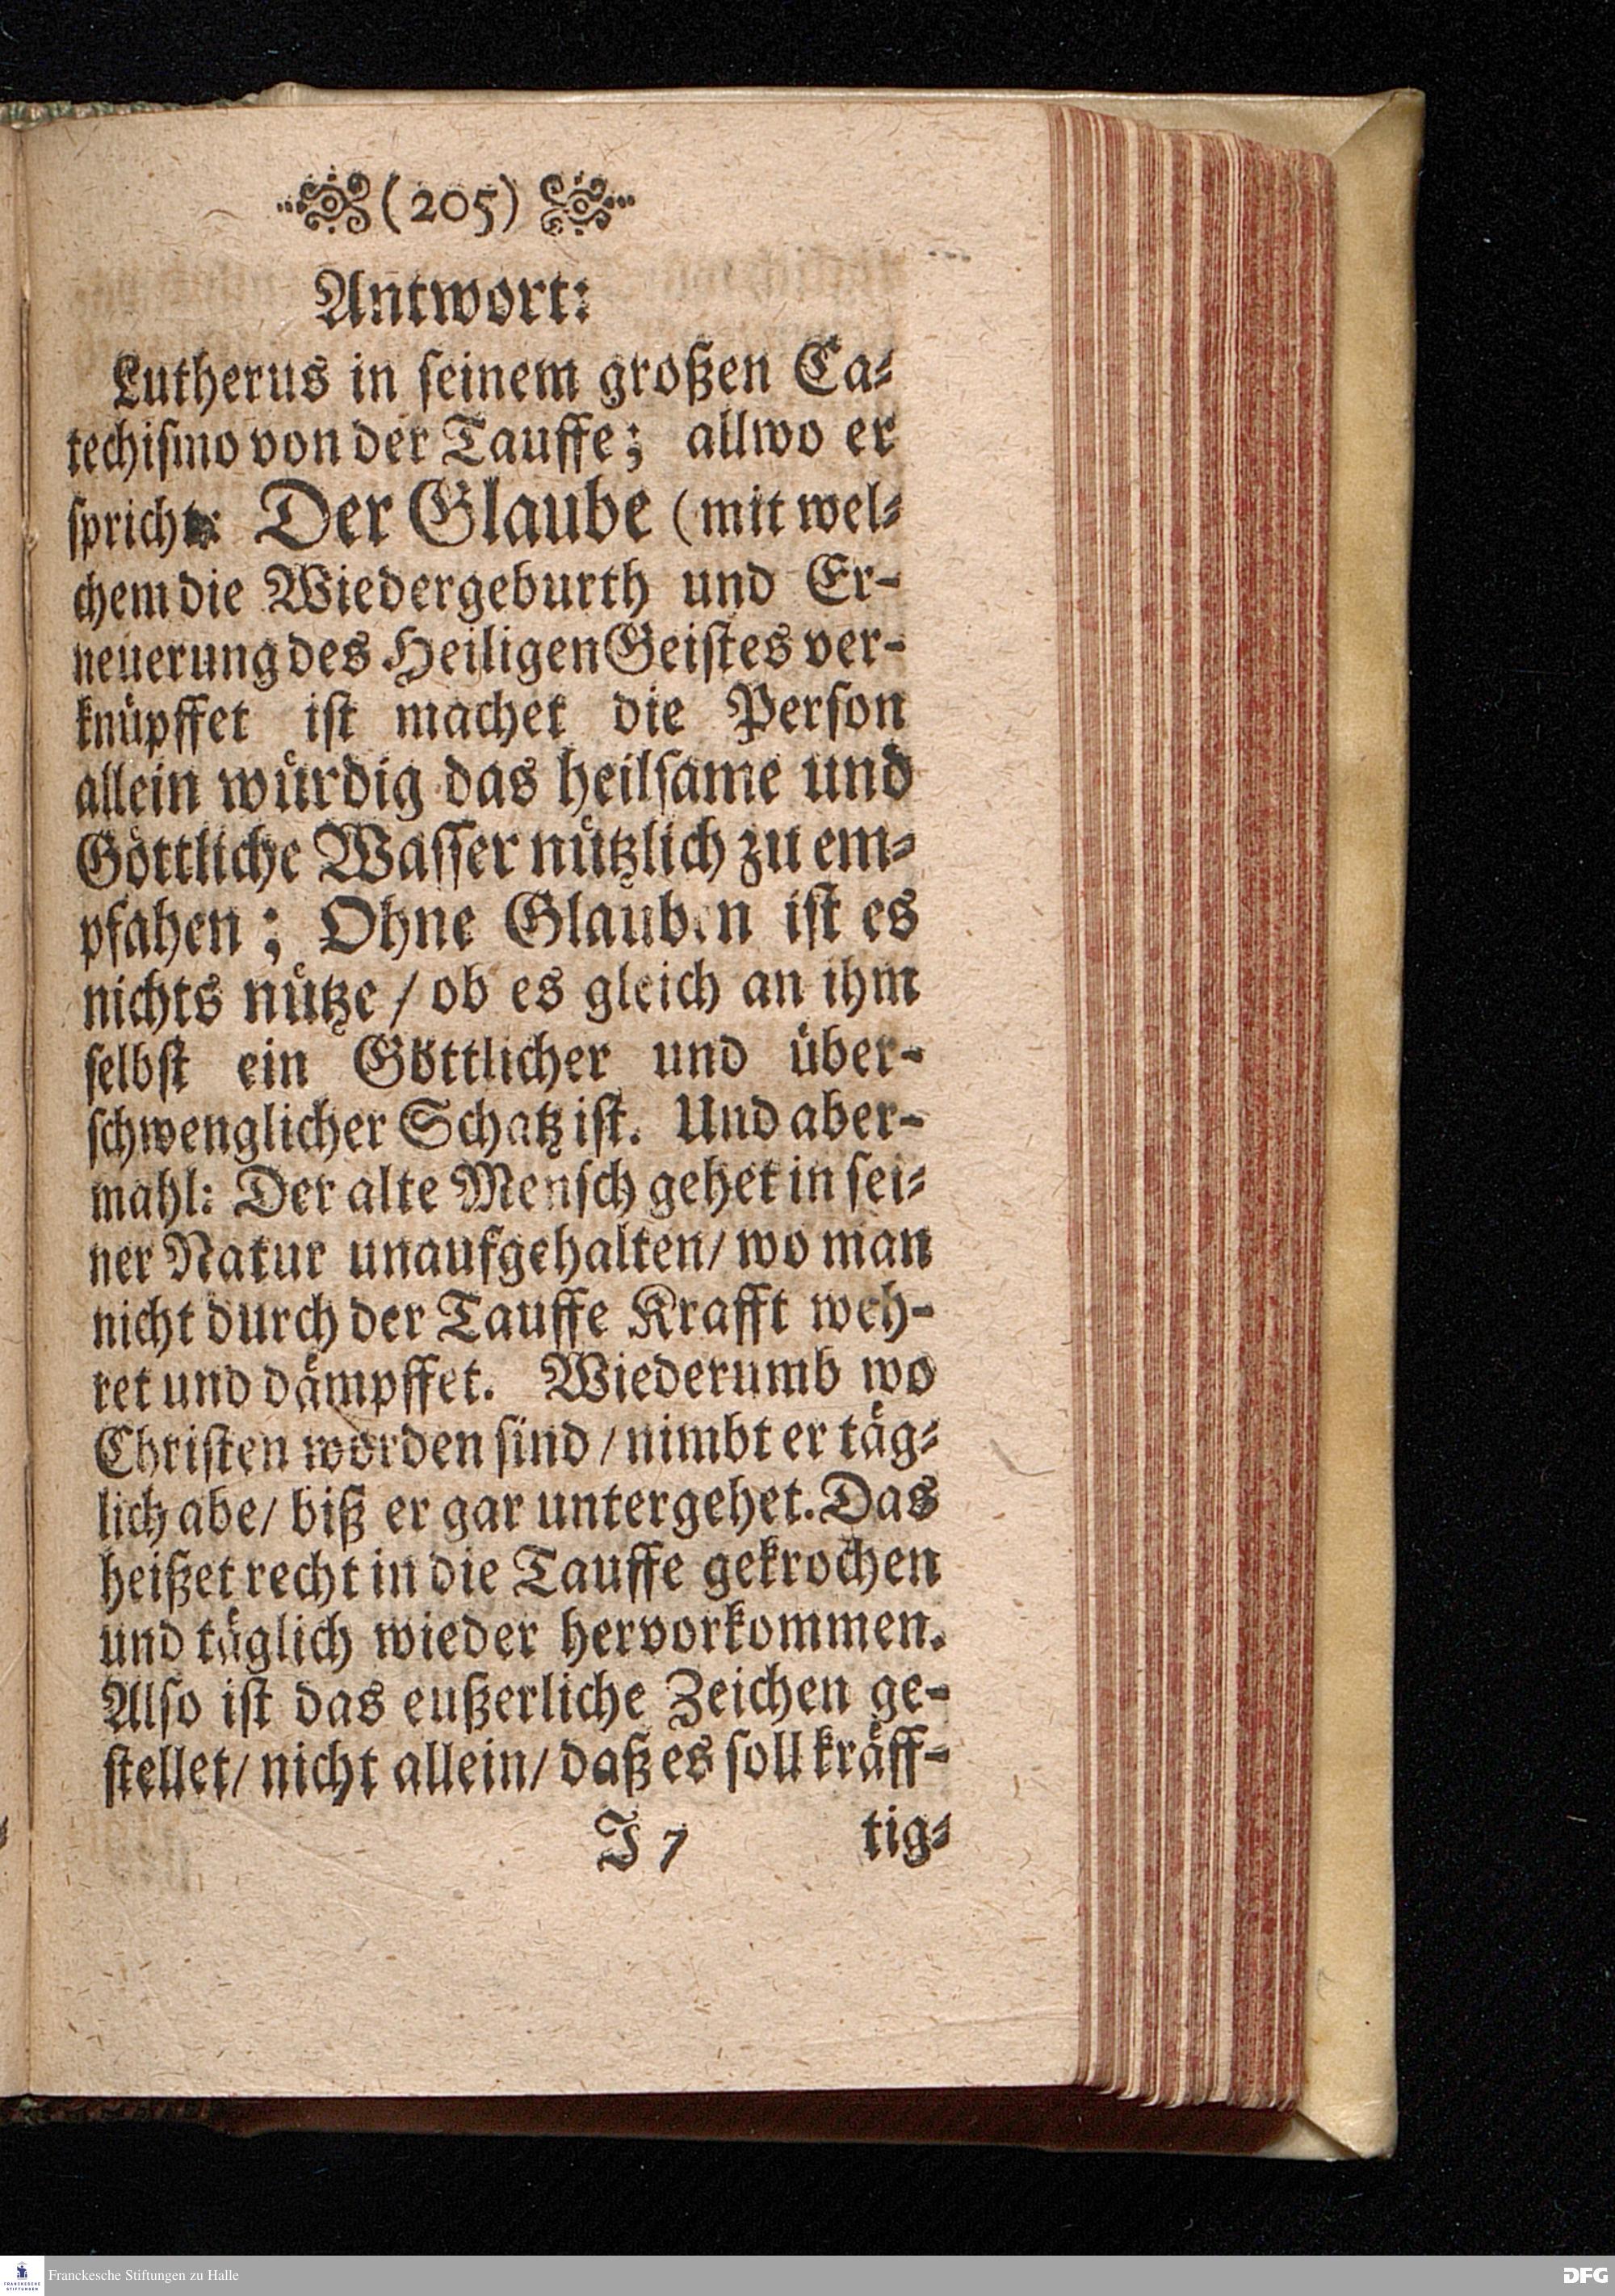 (205)
Antwort:
Lutherus in seinem großen Ca-
techismo von der Tauffe; allwo er
spricht: Der Glaube (mit wel-
chem die Wiedergeburth und Er-
neuerung des Heiligen Geistes ver-
knüpffet ist machet die Person
allein würdig das heilsame und
Göttliche Wasser nützlich zu em-
pfahen; Ohne Glauben ist es
nichts nütze / ob es gleich an ihm
selbst ein Göttlicher und über-
schwenglicher Schatz ist. Und aber-
mahl: Der alte Mensch gehet in sei-
ner Natur unaufgehalten/ wo man
nicht durch der Tauffe Krafft weh-
ret und dämpffet. Wiederumb wo
Christen worden sind / nimbt er täg-
lich abe/ biß er gar untergehet. Das
heißet recht in die Tauffe gekrochen
und täglich wieder hervorkommen.
Also ist das eußerliche Zeichen ge-
stellet/ nicht allein/ daß es soll kräff-
J 7 tig-
FRANCKESCHE STIFTUNGEN Franckesche Stiftungen zu Halle DFG